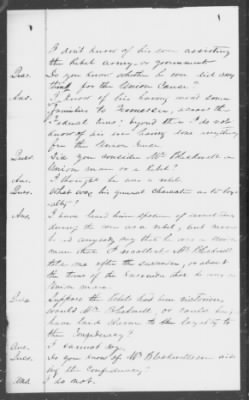 I don't know of his ever assisting
the rebel army or government
Ques. Do you know whether he ever did any
thing for the Union Cause?
Ans. I know of his having sent some
families to Tennessee, across the
Federal lines; beyond this I do not
know of his ever having done anything
for the Union Cause.
Ques. Did you consider Mr Blackwell a
Union man or a rebel?
Ans. I thought he was a rebel
Ques. What was his general character as to loy-
alty?
Ans. I have heard him spoken of sometimes
during the war as a rebel, but never
heard anybody say that he was a Union
man until I Mr. Blackwell
told me after the surrender, or about
the time of the surrender that he was a
Union man.
Ques. Suppose the rebels had been victorious,
would Mr Blackwell, or could he,
have laid claim to his loyalty to
the Confederacy?
Ans. I cannot say.
Ques. Do you know of Mr Blackwell
by the Confederacy?
Ans. I do not.